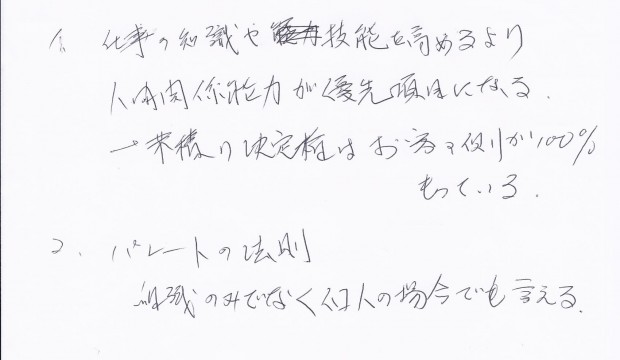 1. 仕事の知識や技能を高めるより
人間関係能力が優先項目になる.
→業績の決定権はお客様側が100%
もっている.
2. パレートの法則
組織のみでなく個人の場合でも言える.